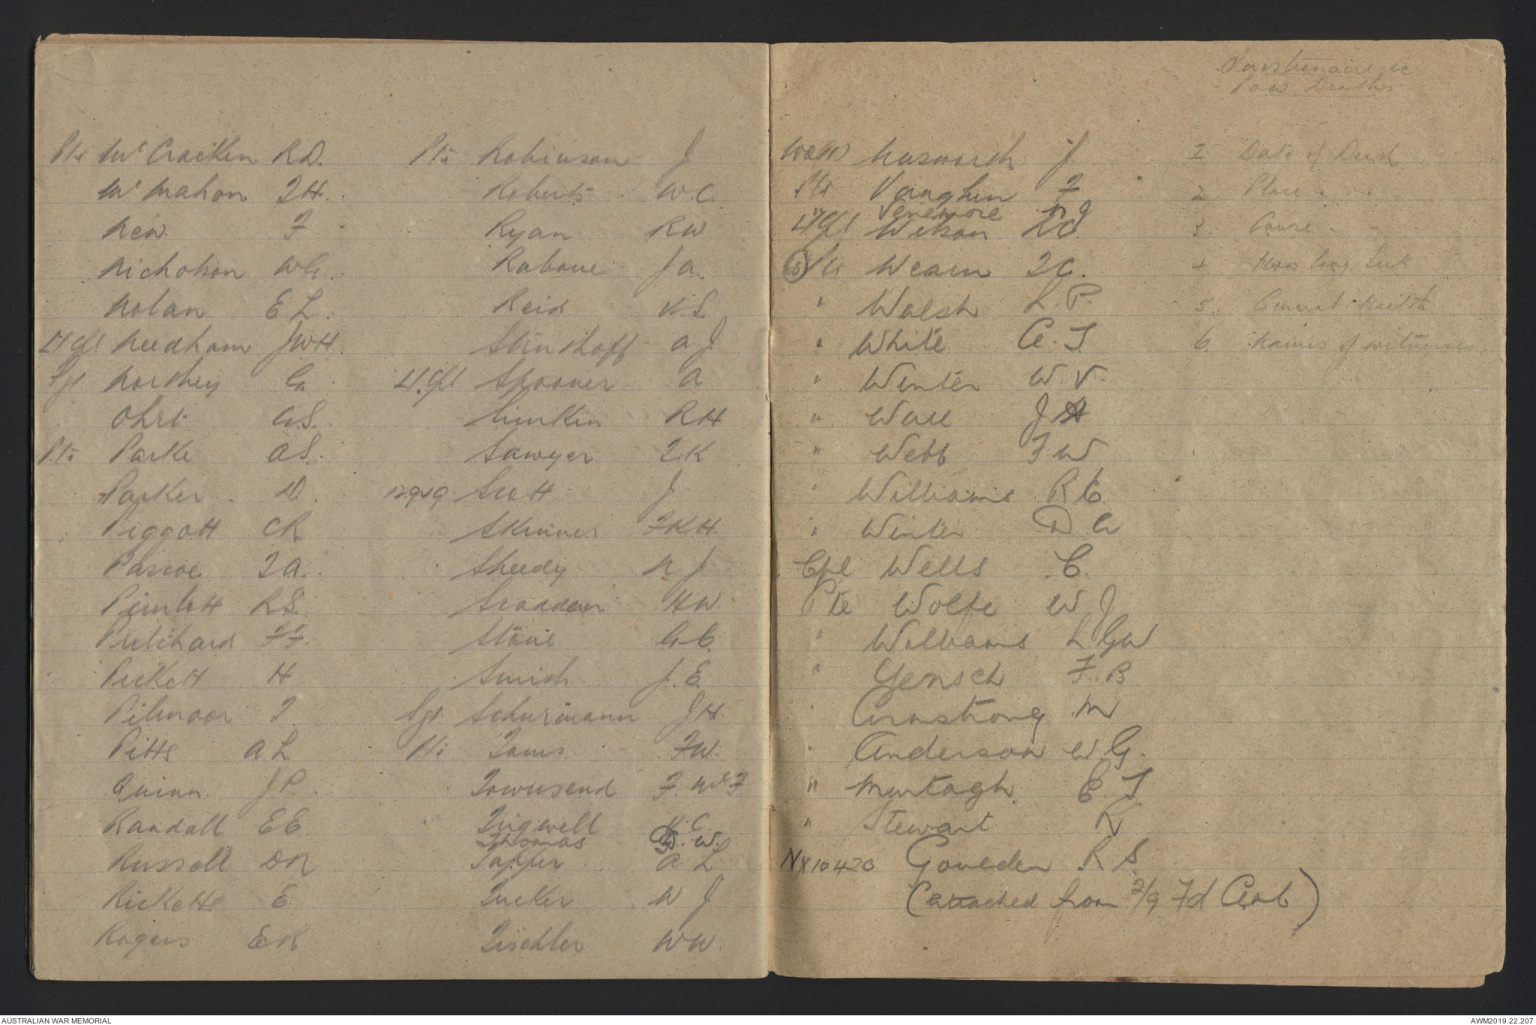 Pte McCracken RD.
McMahon T.H.
New F
Nicholson WG.
Nolan E L.
L/Cpl Needham JWH.
Sgt Northey G
Ohrt G.S.
Pte Parke A S.
Parker D.
Piggott CR
Pascoe T A.
Pimlott R S.
Pritchard F F.
Pickett H
Pilmoor T.
Pitts A L
Quinn J P.
Randall E E
Russell D R
Ricketts E
Rogers E K
Pte Robinson J
Roberts W C.
Ryan R W
Rabone J A.
Reid V. S.
Steinthoff A J
L/Cpl Spooner A
Simkin R H
Sawyer T. K
Scott J
Skinner F K H.
Sheedy N J
Scadden H W
Stone G. C.
Smith J. E.
Sgt Schurmann J H.
Pte Toms F W.
Townsend F. McF
Tugwell
Thomas W.
Tapper A L
Tucker W J
Tischler W W.
Questionaire re
POW Deaths
WO II J
Pte Vaughan F
Venemore
L/Cpl Wilson
Pte T C.
" Walsh L P.
" White A. J.
" Winter W. V.
" Wall J
" Webb F W
" Williams R C.
" Winter D A
Cpl Wells C.
Pte Wolfe W J
" Williams L G W
" Yensch F. B
" Armstrong M
" Anderson W G.
" Murtagh E J.
" Stewart R
NX10420 Goulden R S.
(attached from 2/9 Fd Amb)
1 Date of Death
2 Place
3. Cause
4 How long sick
5. General Health
6. Names of witnesses
AUSTRALIAN WAR MEMORIAL
AWM2019.22.207